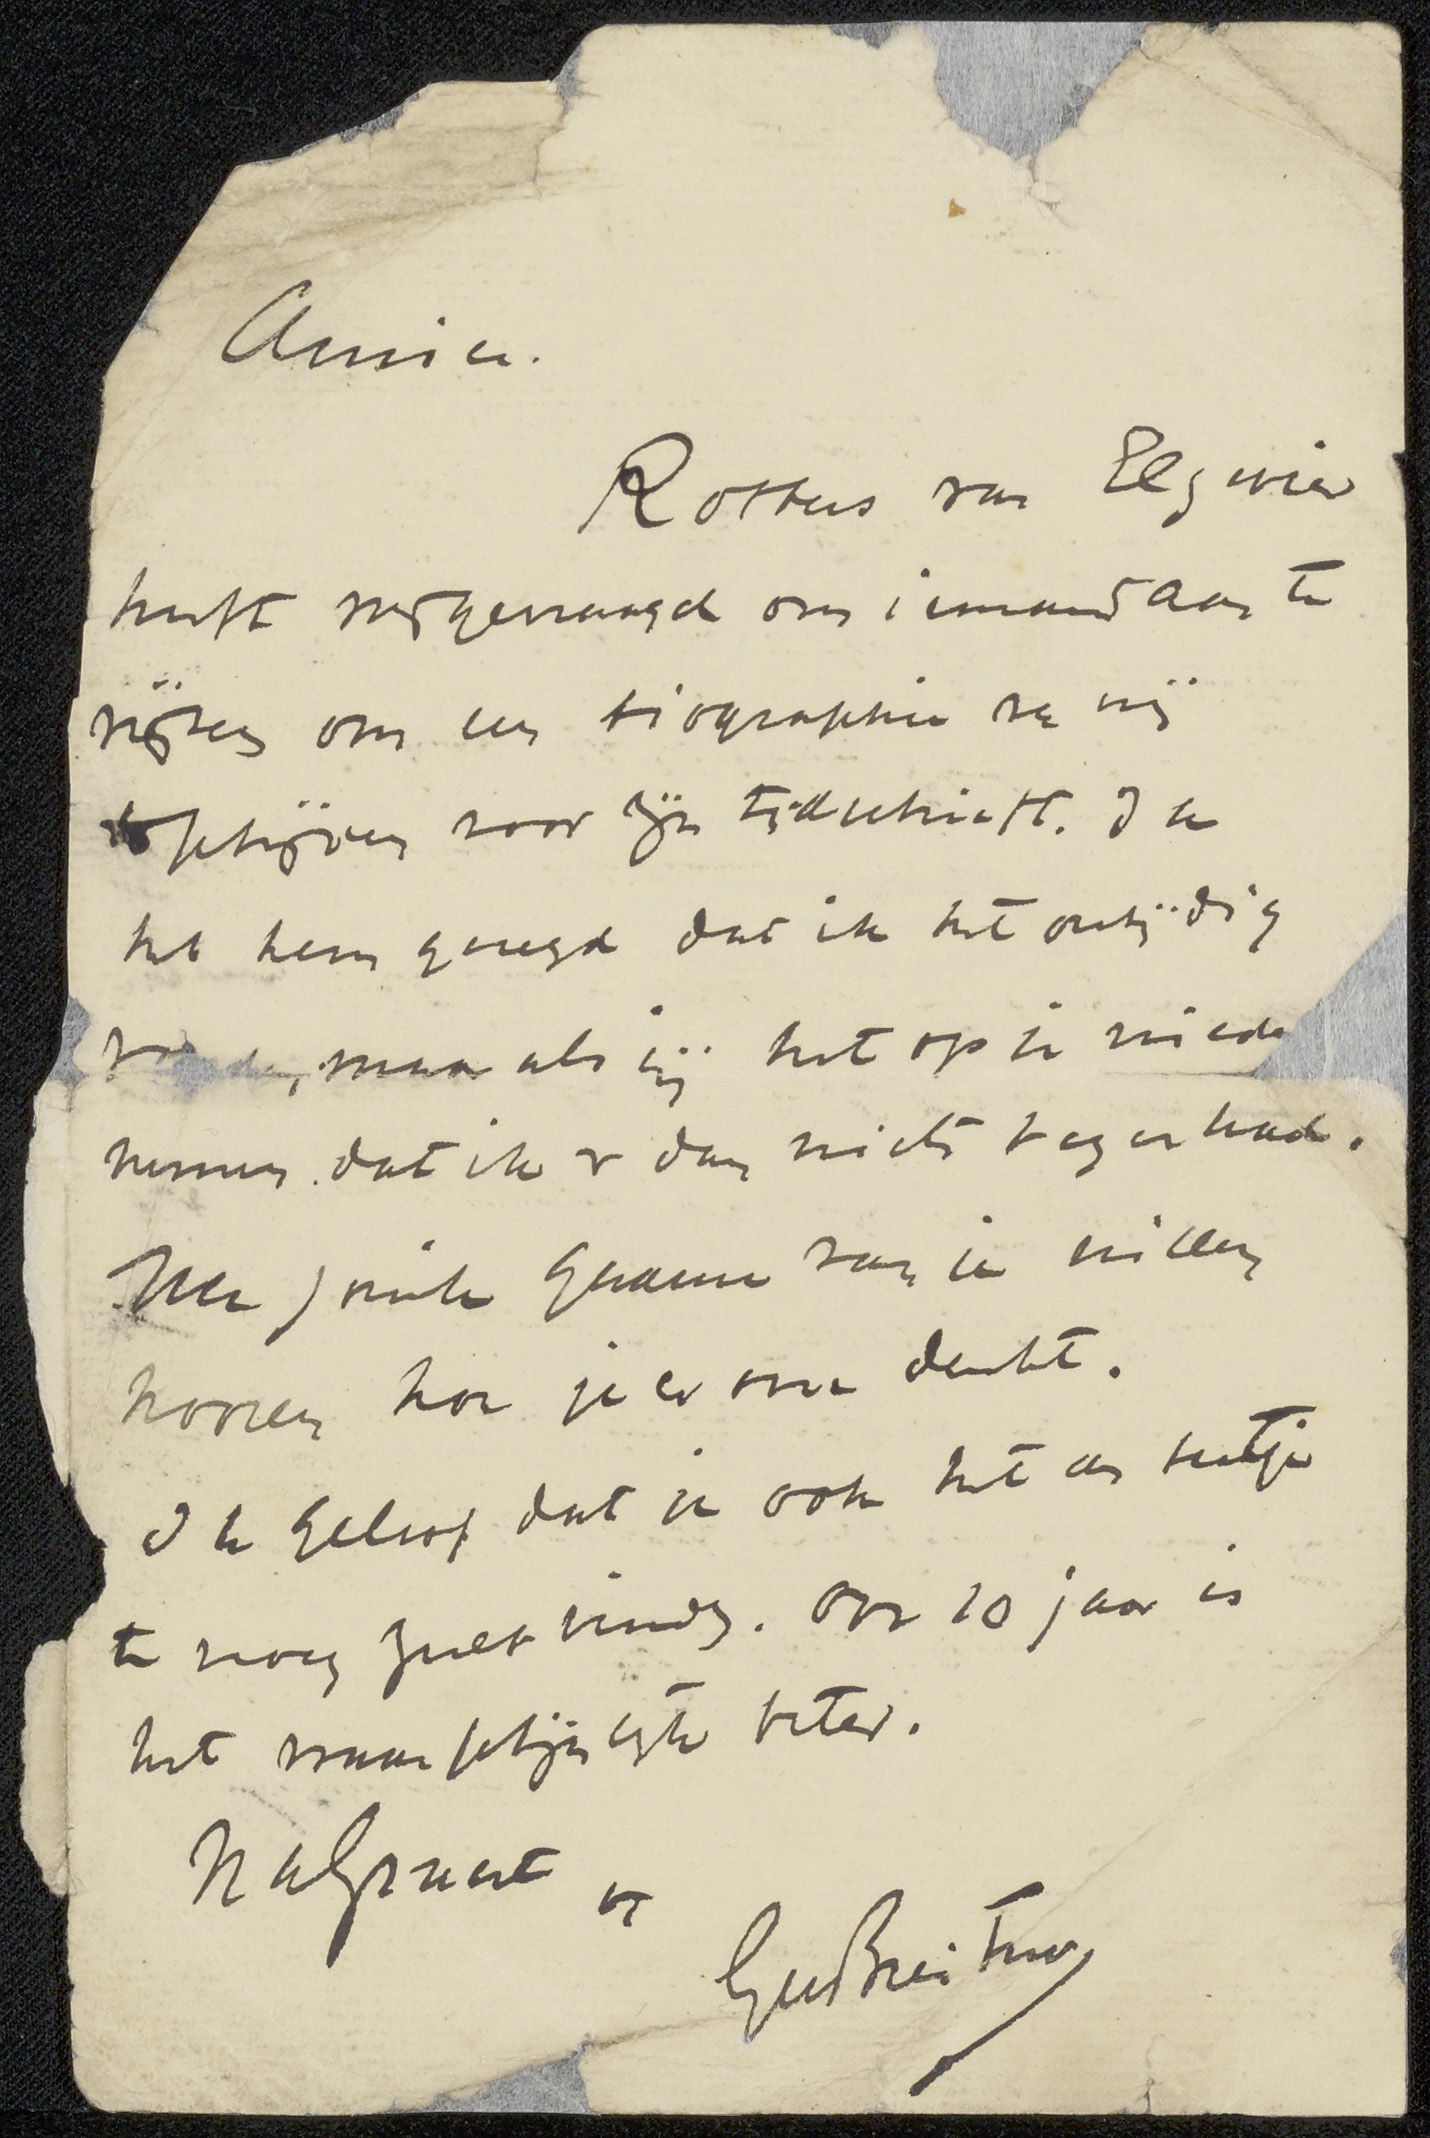 Amice.
Robbers van Elzevier
heeft mij gevraagd om iemand aan te
wijzen om een biographie van mij
te schrijven voor zijn tijdschrift. Ik
heb hem gezegd dat ik het ontijdig
maar als jij het op je wilde
nemen dat ik er dan niets tegen had.
Nu zou ik gaarne van je willen
hooren hoe je er over denkt.
Ik geloof dat je ook het een beetje
te vroeg zult vinden. Over 10 jaar is
het waarschijnlijk beter.
Na groet
GHBreitner